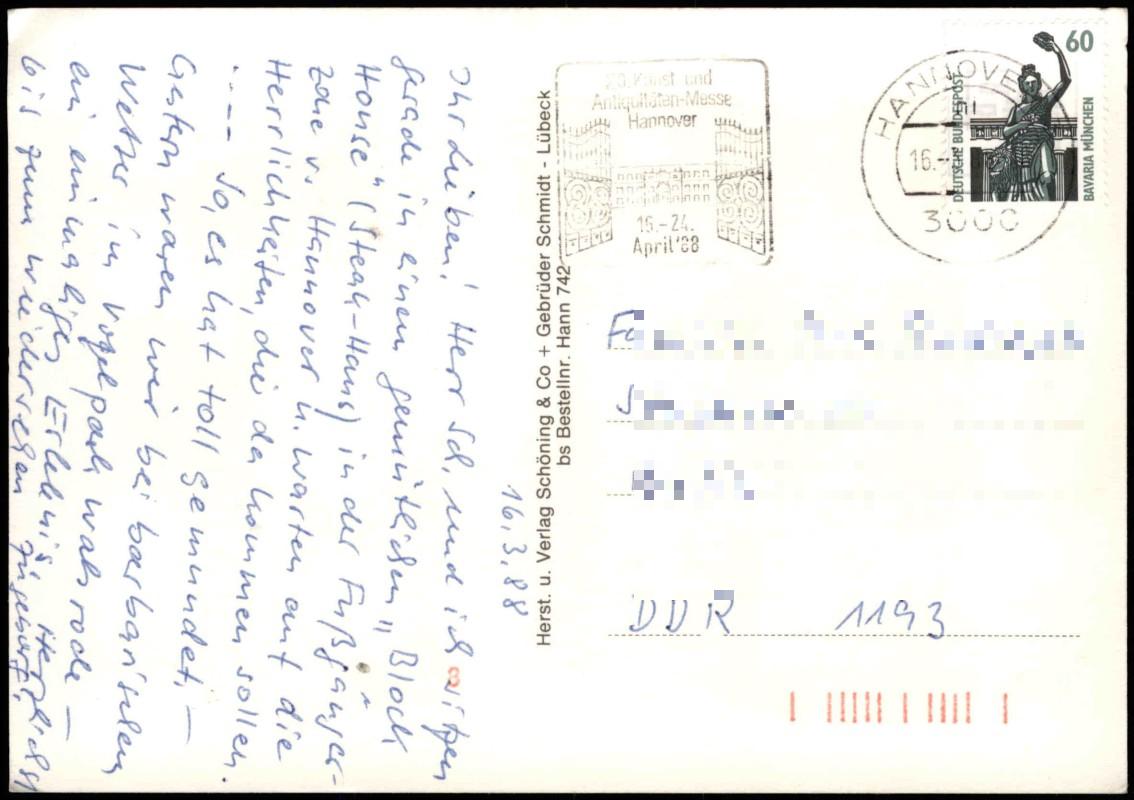 16.3.88
Ihr Lieben! Herr Sch. und ich sitzen
gerade in einem gemütlichen "Block
House" (Steak-Haus) in der Fußgänger-
Zone v. Hannover u. warten auf die
Herrlichkeiten, die da kommen sollen.
.--- So, es hat toll gemundet. —
Gestern waren wir bei barbarischem
Wetter im Vogelpark Walsrode —
ein einmaliges Erlebnis. Herzlichst
bis zum Wiedersehen
Herst. u. Verlag Schöning & Co + Gebrüder Schmidt - Lübeck
bs Bestellnr. Hann 742
20. Kunst und
Antiquitäten-Messe
Hannover
16.-24.
April '88
HANNOVER
16.-
3000
60
DEUTSCHE BUNDESPOST
BAVARIA MÜNCHEN
DDR 1193
8